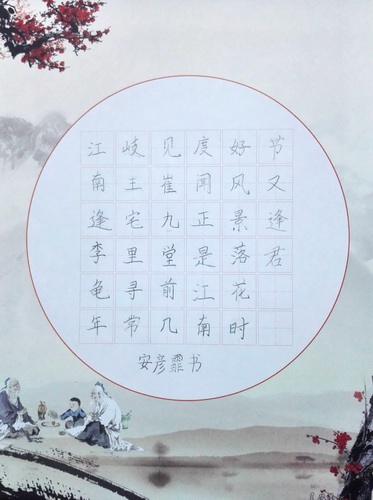 江南逢李龟年
岐王宅里寻常
见崔九堂前几
度闻正是江南
好风景落花时
节又逢君
安彦霏书